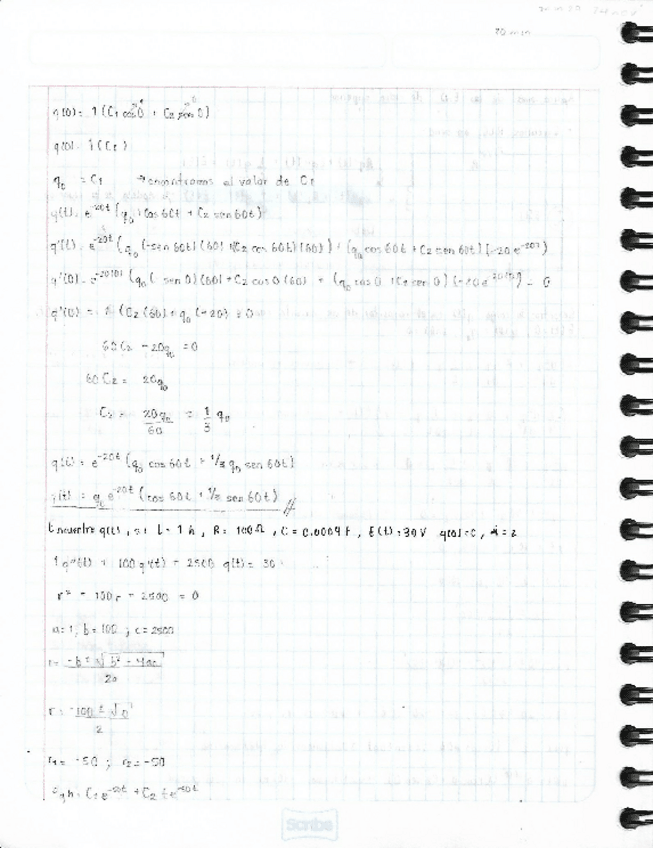 20 min
q(0) = 1 (C1 cos 0 + C2 sen 0)
q(0) = 1 (C1)
q0 = C1 → encontramos el valor de C1
q(t) = e^-20t (q0 cos 60t + C2 sen 60t)
q'(t) = e^-20t (q0 (-sen 60t) (60) + (C2 cos 60t) (60)) + (q0 cos 60t + C2 sen 60t) (-20 e^-20t)
q'(0) = e^-20(0) (q0 (-sen 0) (60) + C2 cos 0 (60) + (q0 cos 0 + C2 sen 0) (-20 e^-20(0)) = 0
q'(0) = 1 (C2 (60) + q0 (-20) = 0
60 C2 - 20q0 = 0
60 C2 = 20q0
C2 = 20q0/60 = 1/3 q0
q(t) = e^-20t (q0 cos 60t + 1/3 q0 sen 60t)
q(t) = q0 e^-20t (cos 60t + 1/3 sen 60t) //
Encuentre q(t), si L = 1 h, R = 100 Ω, C = 0.0004 f, E(t) = 30 V q(0) = 0, = 2
1 q''(t) + 100 q'(t) + 2500 q(t) = 30
r² + 100r + 2500 = 0
a = 1, b = 100 ; c = 2500
r = -b ± √b² - 4ac / 2a
r = -100 ± √0 / 2
r1 = -50 ; r2 = -50
C1 e^-50t + C2 t e^-50t
Scribe